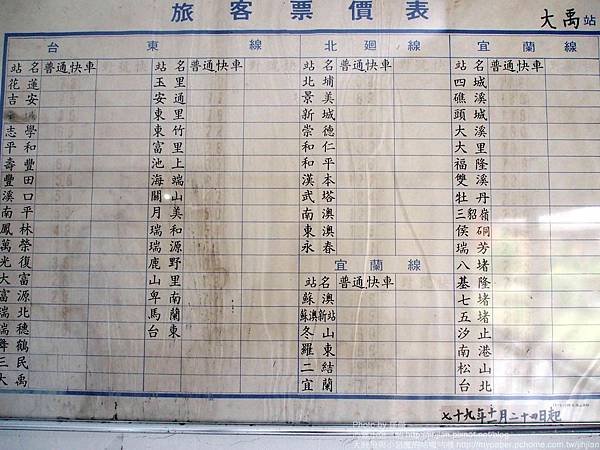 旅客票價表
大禹站
台東線
站名 普通快車
花蓮
吉安
志學
平和
壽豐
豐田
溪口
南平
鳳林
萬榮
光復
大富
富源
瑞北
瑞穗
舞鶴
三民
大禹
站名 普通快車
玉里
安通
東里
東竹
富里
池上
海端
關山
月美
瑞和
瑞源
鹿野
山里
卑南
馬蘭
台東
北廻線
站名 普通快車
北埔
景美
新城
崇德
和仁
和平
漢本
武塔
南澳
東澳
永春
宜蘭線
站名 普通快車
蘇澳
蘇澳新站
冬山
羅東
二結
宜蘭
宜蘭線
站名 普通快車
四城
礁溪
頭城
大溪
大里
福隆
雙溪
牡丹
三貂嶺
侯硐
瑞芳
八堵
基隆
七堵
五堵
汐止
南港
松山
台北
七十九年十二月二十四日起